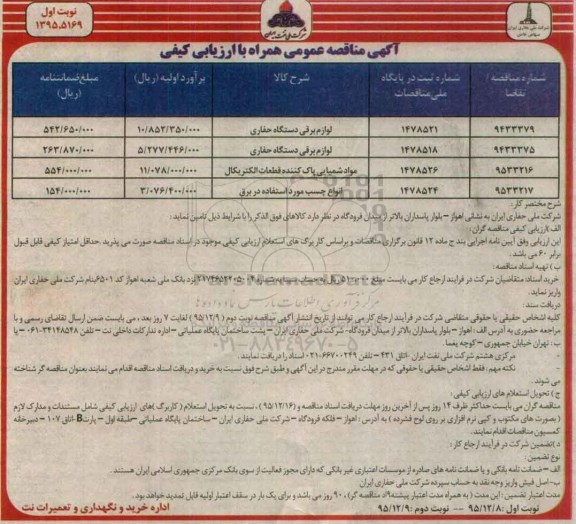 نوبت اول
۱۳۹۵.۵۱۶۹
شرکت ملی نفت ایران
شرکت ملی حفاری ایران
سهامی خاص
آگهی مناقصه عمومی همراه با ارزیابی کیفی
شماره مناقصه / تقاضا
شماره ثبت در پایگاه ملی مناقصات
شرح کالا
برآورد اولیه (ریال)
مبلغ ضمانتنامه (ریال)
۹۴۳۳۳۷۹ ۱۴۷۸۵۲۱ لوازم برقی دستگاه حفاری ۱۰/۸۵۲/۳۵۰/۰۰۰ ۵۴۲/۶۵۰/۰۰۰
۹۴۳۳۳۷۵ ۱۴۷۸۵۱۸ لوازم برقی دستگاه حفاری ۵/۲۷۷/۴۴۶/۰۰۰ ۲۶۳/۸۷۰/۰۰۰
۹۵۳۳۲۱۶ ۱۴۷۸۵۲۶ مواد شیمیایی پاک کننده قطعات الکتریکال ۱۱/۰۷۸/۰۰۰/۰۰۰ ۵۵۴/۰۰۰/۰۰۰
۹۵۳۳۲۱۷ ۱۴۷۸۵۲۴ انواع چسب مورد استفاده در برق ۳/۰۷۶/۴۰۰/۰۰۰ ۱۵۴/۰۰۰/۰۰۰
شرح مختصر کار:
شرکت ملی حفاری ایران به نشانی اهواز – بلوار پاسداران بالاتر از میدان فرودگاه در نظر دارد کالاهای فوق الذکر را با شرایط ذیل تامین نماید:
الف )ارزیابی کیفی مناقصه گران:
این ارزیابی وفق آیین نامه اجرایی بند ج ماده ۱۲ قانون برگزاری مناقصات و براساس کاربرگ های استعلام ارزیابی کیفی موجود در اسناد مناقصه صورت می پذیرد .حداقل امتیاز کیفی قابل قبول
برابر ۶۰ می باشد .
ب ) تهیه اسناد مناقصه :
خرید اسناد: متقاضیان شرکت در فرایند ارجاع کار می بایست مبلغ ۵۱۰/۰۰۰ ریال نزد بانک ملی شعبه اهواز کد ۶۵۰۱ بنام شرکت ملی حفاری ایران
واریز نماید.
دریافت سند :
کلیه اشخاص حقیقی یا حقوقی متقاضی شرکت در فرآیند ارجاع کار می توانند از تاریخ انتشار آگهی مناقصه نوبت دوم ( ۹۵/۱۲/۹ ) لغایت ۷ روز بعد ، می بایست ضمن ارسال تقاضای رسمی و با
مراجعه حضوری به آدرس الف : اهواز – بلوار پاسداران بالاتر از میدان فرودگاه- شرکت ملی حفاری ایران – پشت ساختمان پایگاه عملیاتی – اداره تدارکات داخلی نت – تلفن ۳۴۱۴۸۵۴۸-۰۶۱ – یا
ب : تهران خیابان جمهوری – کوچه یغما
- مرکزی هشتم شرکت ملی نفت ایران –اتاق ۴۳۱ – تلفن ۶۶۷۰۰۲۴۹-۰۲۱ اسناد را دریافت نمایند.
- نکته مهم : فقط اشخاص حقیقی یا حقوقی که در مهلت مقرر مندرج در این آگهی و طبق شرح فوق نسبت به خرید و دریافت اسناد مناقصه اقدام می نمایند بعنوان مناقصه گر شناخته
می شوند .
ج ) تحویل استعلام های ارزیابی کیفی :
مناقصه گران می بایست حداکثر ظرف ۱۴ روز پس از آخرین روز مهلت دریافت اسناد مناقصه و (۹۵/۱۲/۱۶) ، نسبت به تحویل استعلام ( کاربرگ )های ارزیابی کیفی شامل مستندات و مدارک لازم
( بصورت های مکتوب و کپی نرم افزاری بر روی لوح فشرده ) به آدرس : اهواز – فلکه فرودگاه – شرکت ملی حفاری ایران – ساختمان پایگاه عملیاتی –طبقه اول – پارت B-اتاق ۱۰۷ – دبیرخانه
کمیسیون مناقصات اقدام نمایند.
د )تضمین شرکت در فرآیند ارجاع کار :
نوع تضمین :
الف –ضمانت نامه بانکی و یا ضمانت نامه های صادره از موسسات اعتباری غیر بانکی که دارای مجوز فعالیت از سوی بانک مرکزی جمهوری اسلامی ایران هستند.
ب- اصل فیش واریز وجه نقد به حساب سپرده شرکت ملی حفاری ایران
مدت اعتبار تضمین : این مدت ( به همراه مدت اعتبار پیشنهاد مناقصه گر) ، ۹۰ روز می باشد و برای یک بار در سقف اعتبار اولیه قابل تمدید خواهد بود.
نوبت اول : ۹۵/۱۲/۸ -- نوبت دوم : ۹۵/۱۲/۹
اداره خرید و نگهداری و تعمیرات نت
مرکز فرآوری اطلاعات پارس نماد داده ها
۰۲۱-۸۸۳۴۹۶۷۰-۵